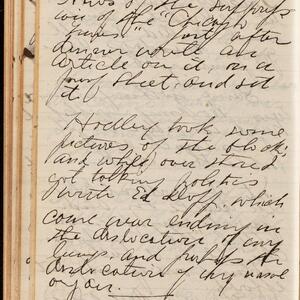 News of the suppress-
ion of the "Chicago
Times" Just after
dinner wrote an
article on it, on a
proof sheet, and set
it.
Hodley took some
pictures of the block,
and while over there I
got talking politics
with Ed Duff, which
come near ending in
the dislocation of my
lungs, and perhaps the
dislocation of my nasal
organ.